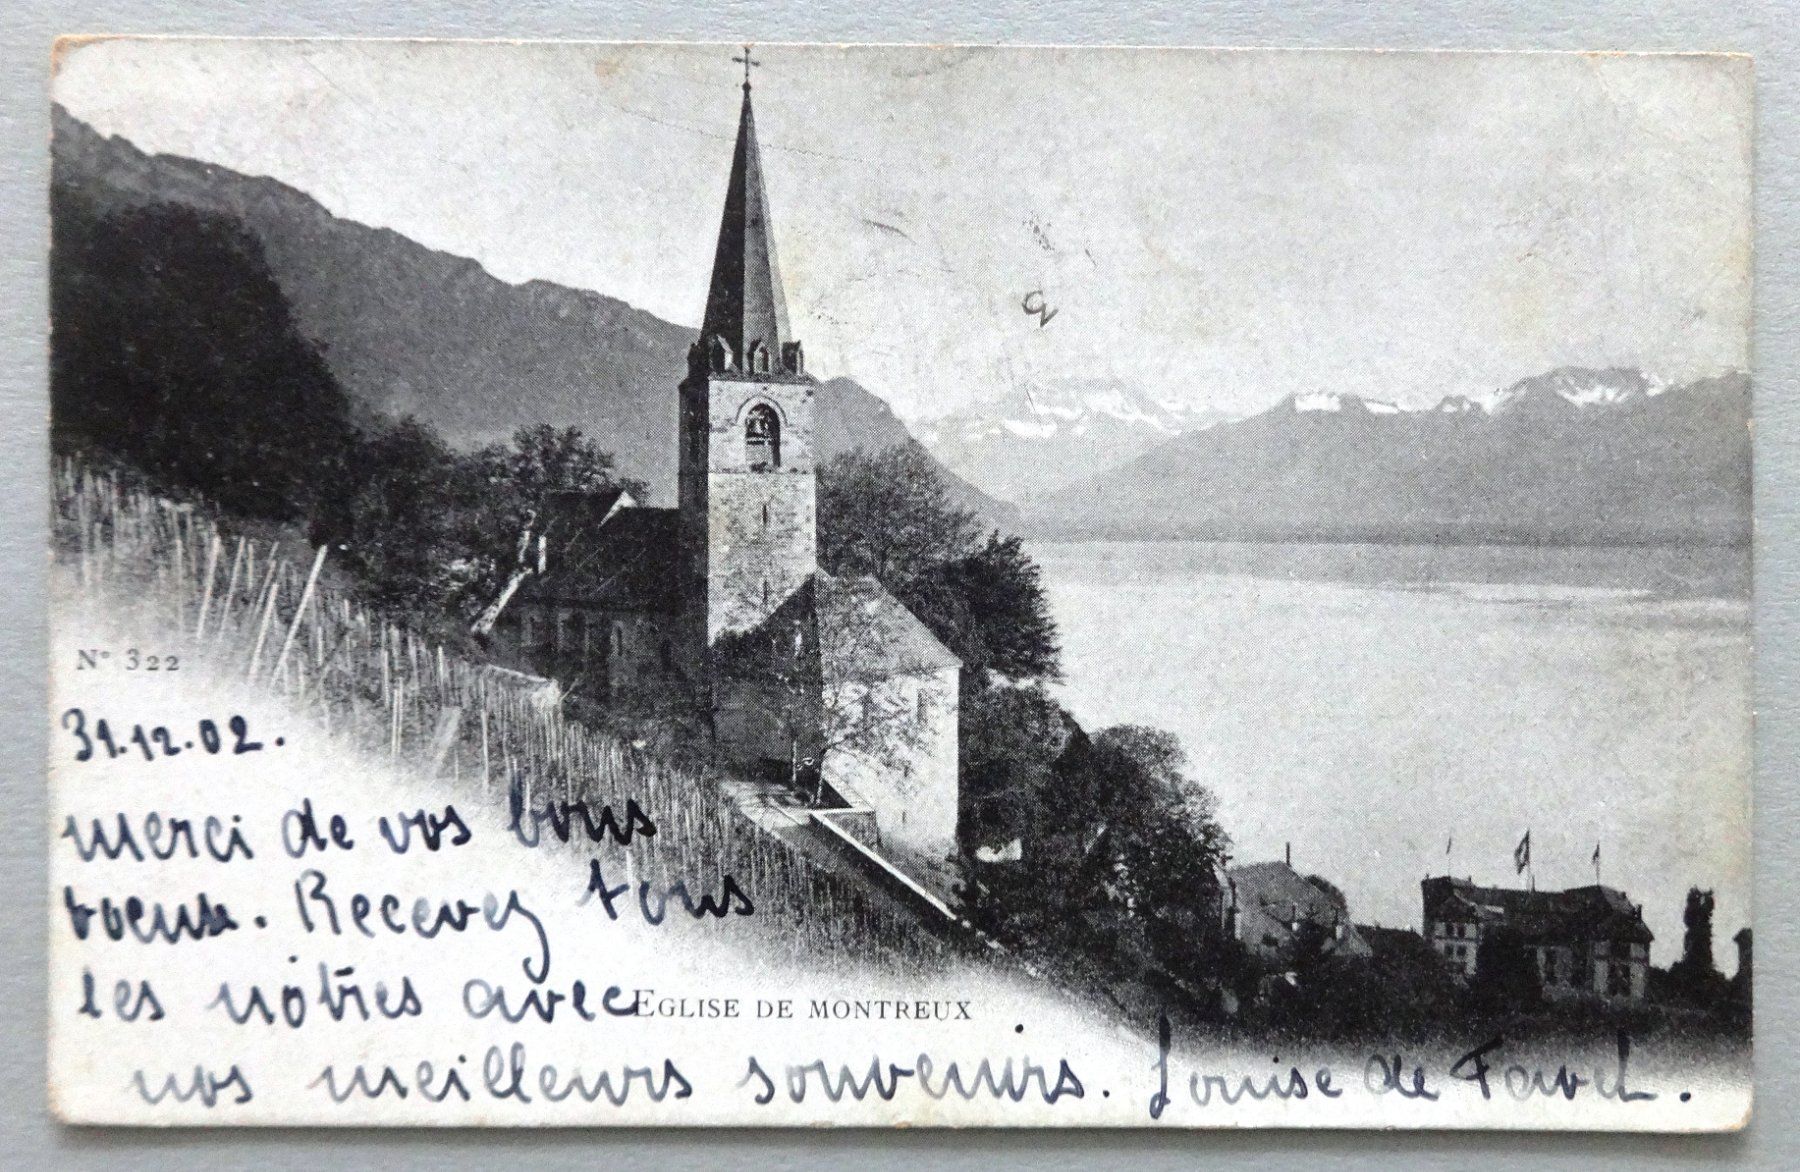 N° 322
31.12.02.
merci de vos bons
voeux. Recevez tous
les nôtres avec
EGLISE DE MONTREUX
nos meilleurs souvenirs. Louise de Favel.